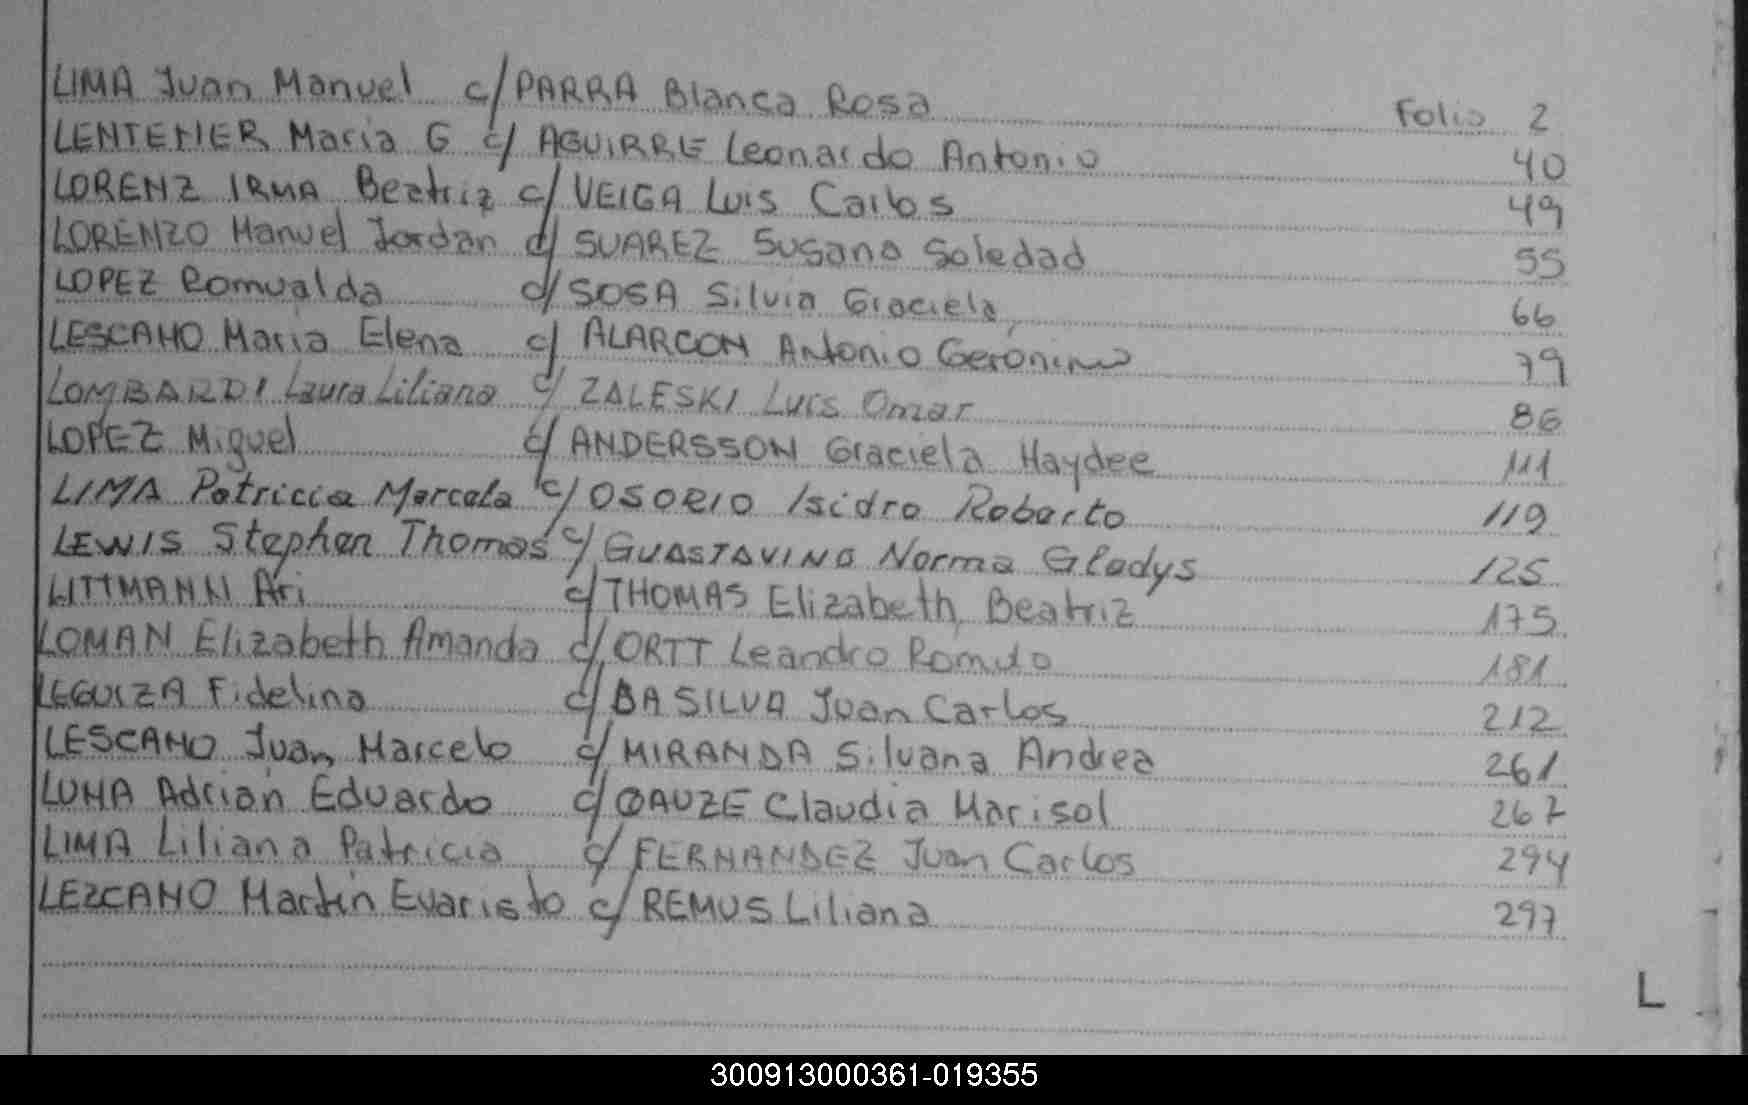 LIMA Juan Manuel c/ PARRA Blanca Rosa Folio 2
LENTEMER Maria G c/ AGUIRRE Leonardo Antonio 40
LORENZ IRMA Beatriz c/ VEIGA Luis Carlos 49
LORENZO Manuel Jordan c/ SUAREZ Susana Soledad 55
LOPEZ Romualda c/ SOSA Silvia Graciela 66
LESCANO Maria Elena c/ ALARCON Antonio Gerónimo 79
LOMBARDI Laura Liliana c/ ZALESKI Luis Omar 86
LOPEZ Miguel c/ ANDERSSON Graciela Haydee 111
LIMA Patricia Marcela c/ OSORIO Isidro Roberto 119
LEWIS Stephen Thomas c/ GUASTAVINO Norma Gladys 125
LITTMANN Ari c/ THOMAS Elizabeth Beatriz 175
LOMAN Elizabeth Amanda c/ ORTT Leandro Romulo 181
LEGUIZA Fidelina c/ DA SILVA Juan Carlos 212
LESCANO Juan Marcelo c/ MIRANDA Silvana Andrea 261
LUNA Adrián Eduardo c/ DAUZE Claudia Marisol 267
LIMA Liliana Patricia c/ FERNANDEZ Juan Carlos 294
LEZCANO Martín Evaristo c/ REMUS Liliana 297
L
300913000361-019355